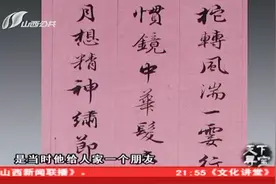 山西公共
柁轉風湍一霎行
慣鏡中華髮
月想精神繡節
是当时他给人家一个朋友
山西新闻联播》。
21:55《文化讲堂》